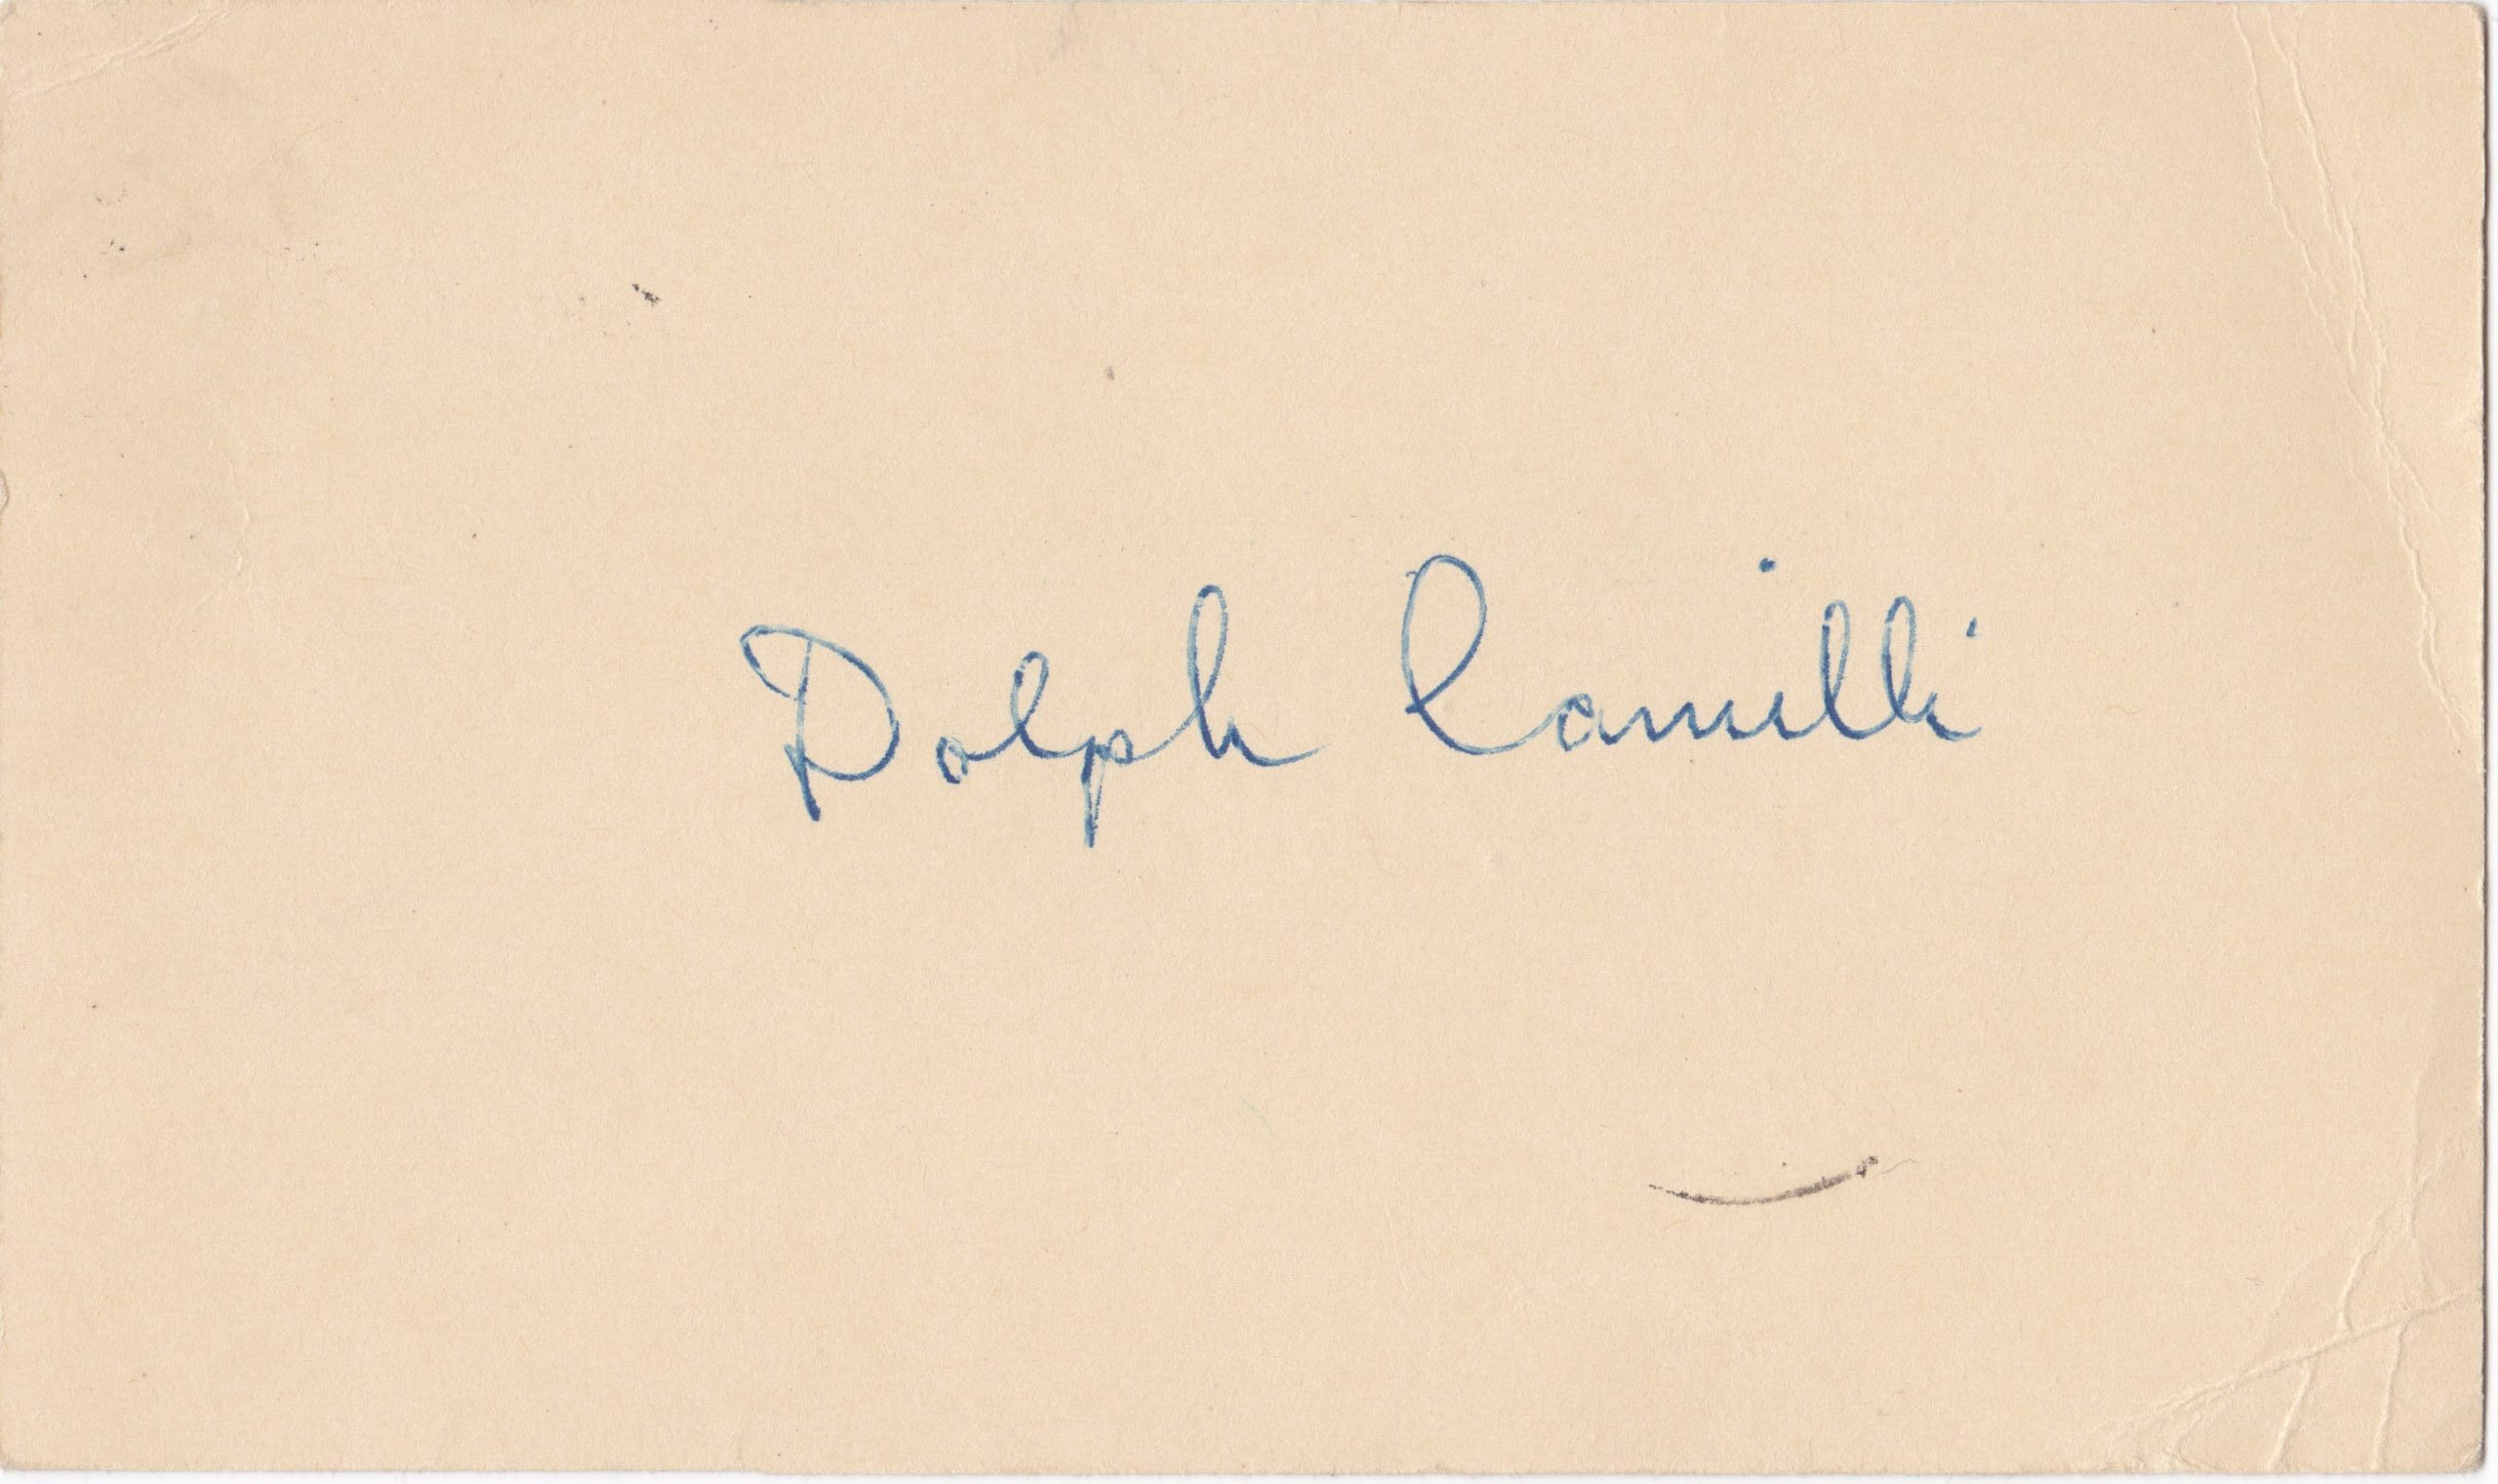 Dolph Camilli